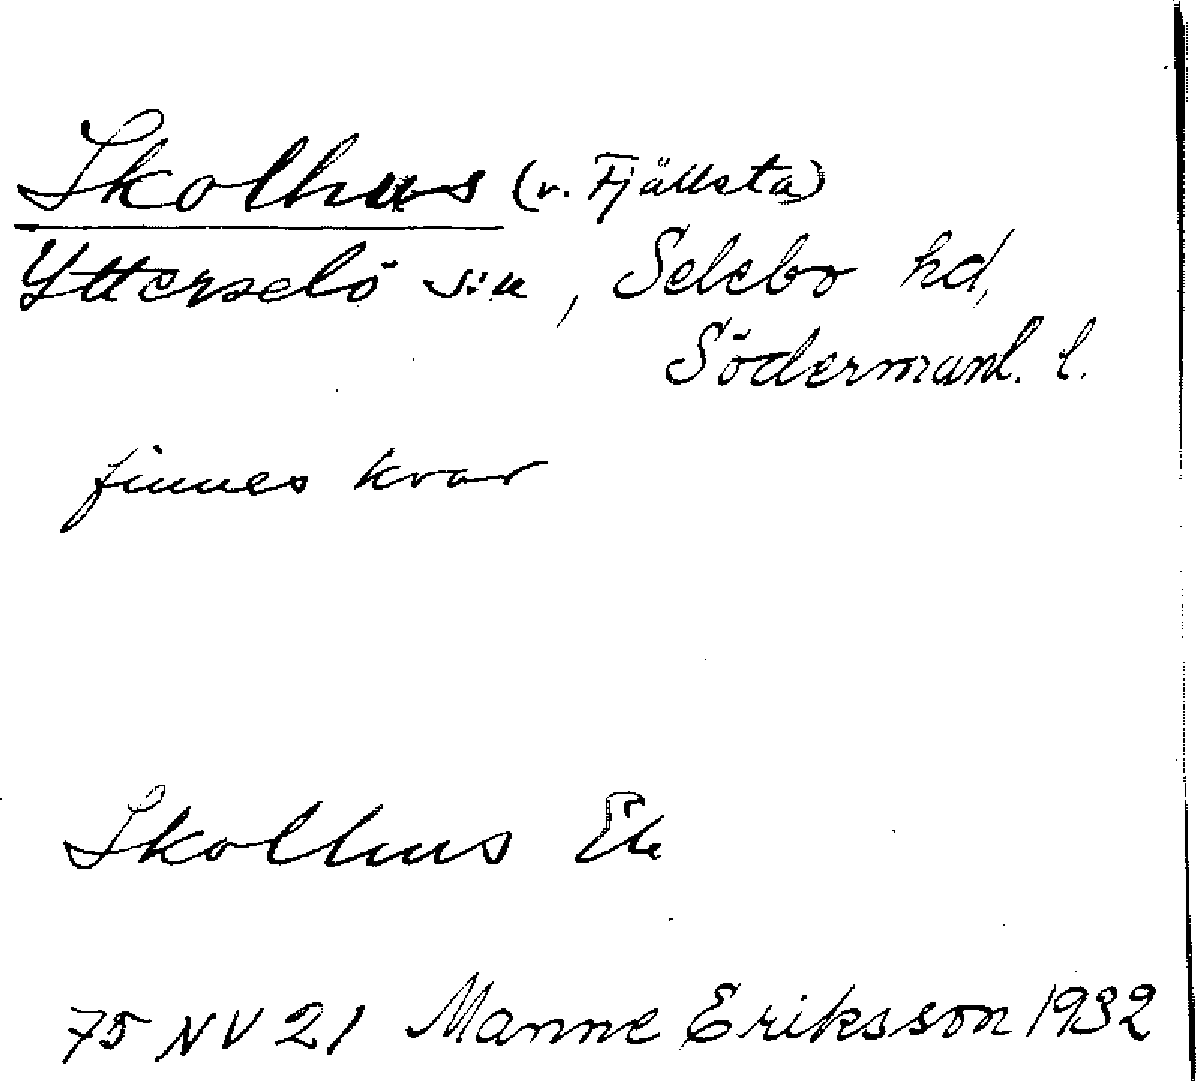 Skolhus (v. Fjällsta)
Ytterselö s:n, Selebo hd,
Södermanl. l.
finnes kvar
Skolhus Ek
75 NV 21 Manne Eriksson 1932